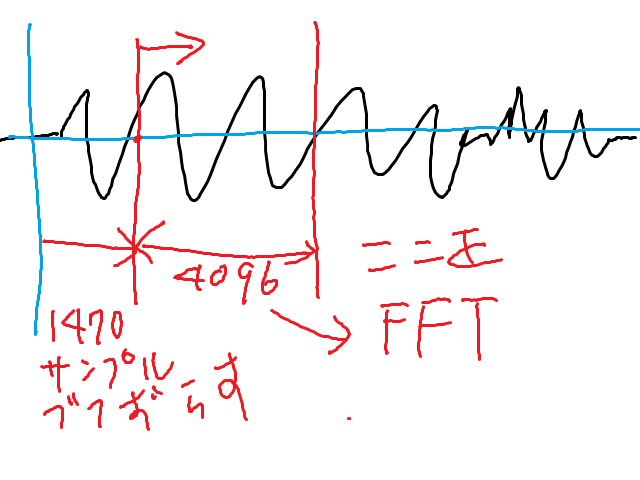 4096
ここを
FFT
1470
サンプル
ずつずらす